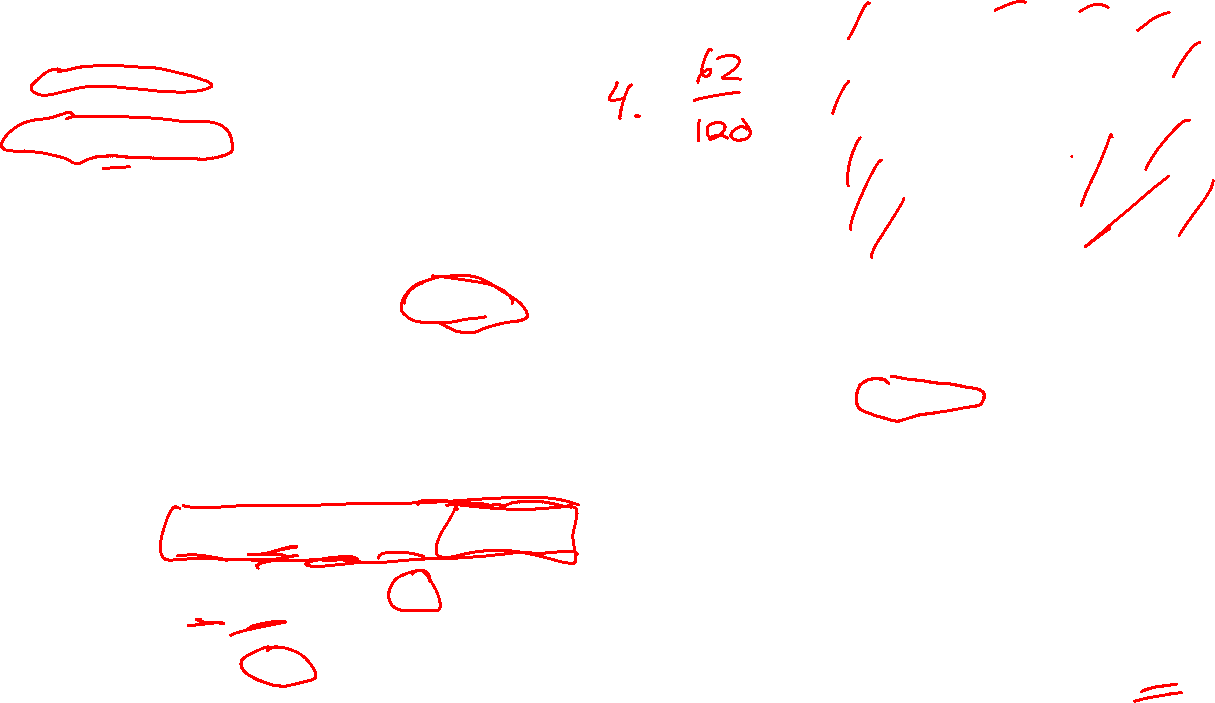 4. 62/100